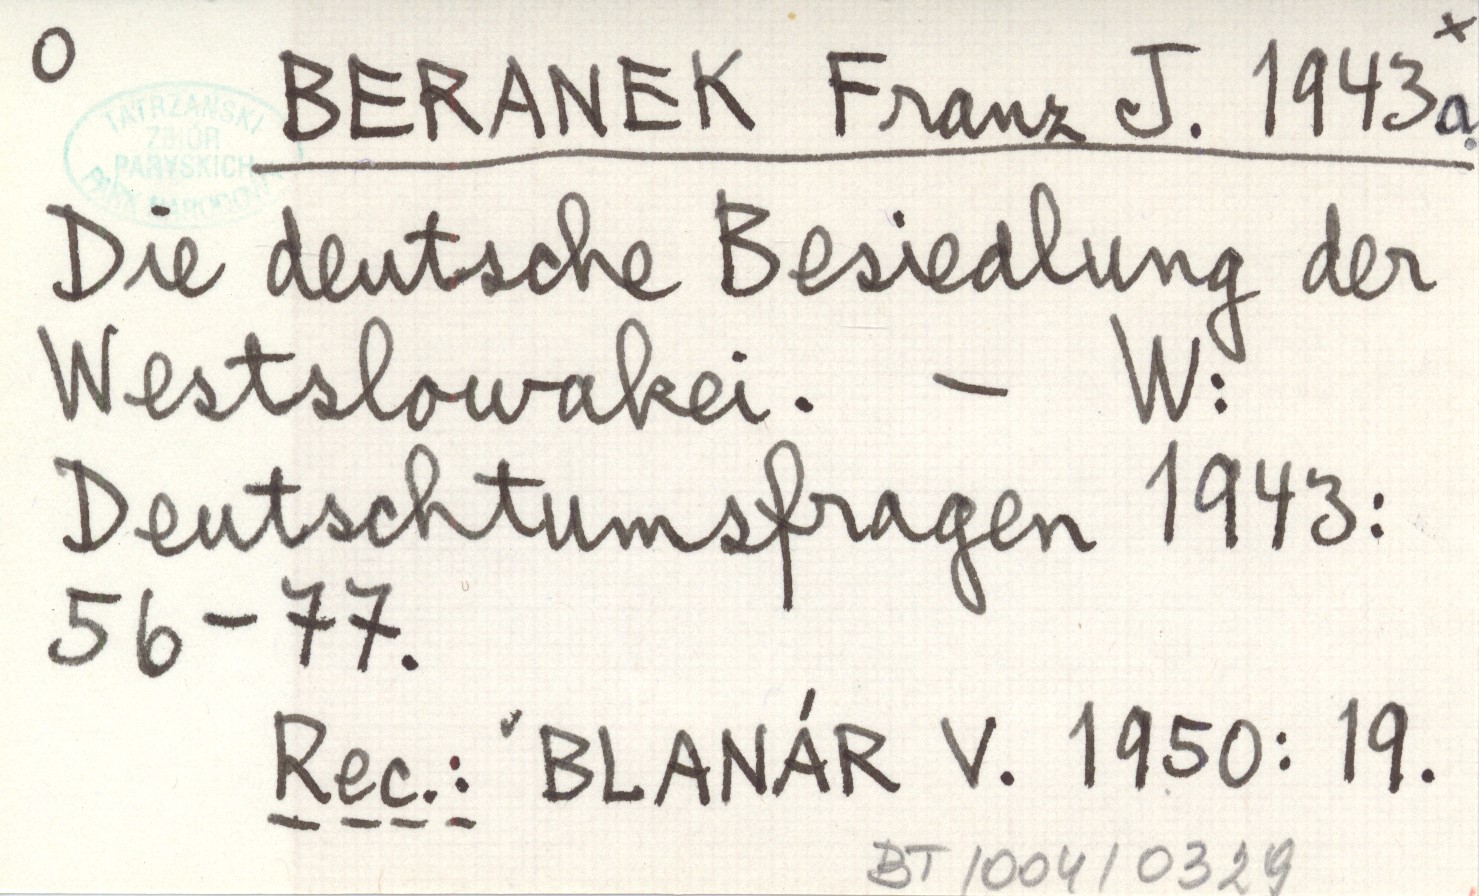 O
x
BERANEK Franz J. 1943a.
TATRZAŃSKI
ZBIÓR
PARYSKICH
PARK NARODOWY
Die deutsche Besiedlung der
Westslowakei. — W:
Deutschtumsfragen 1943:
56-77.
Rec.: BLANÁR V. 1950: 19.
BT/004/0329